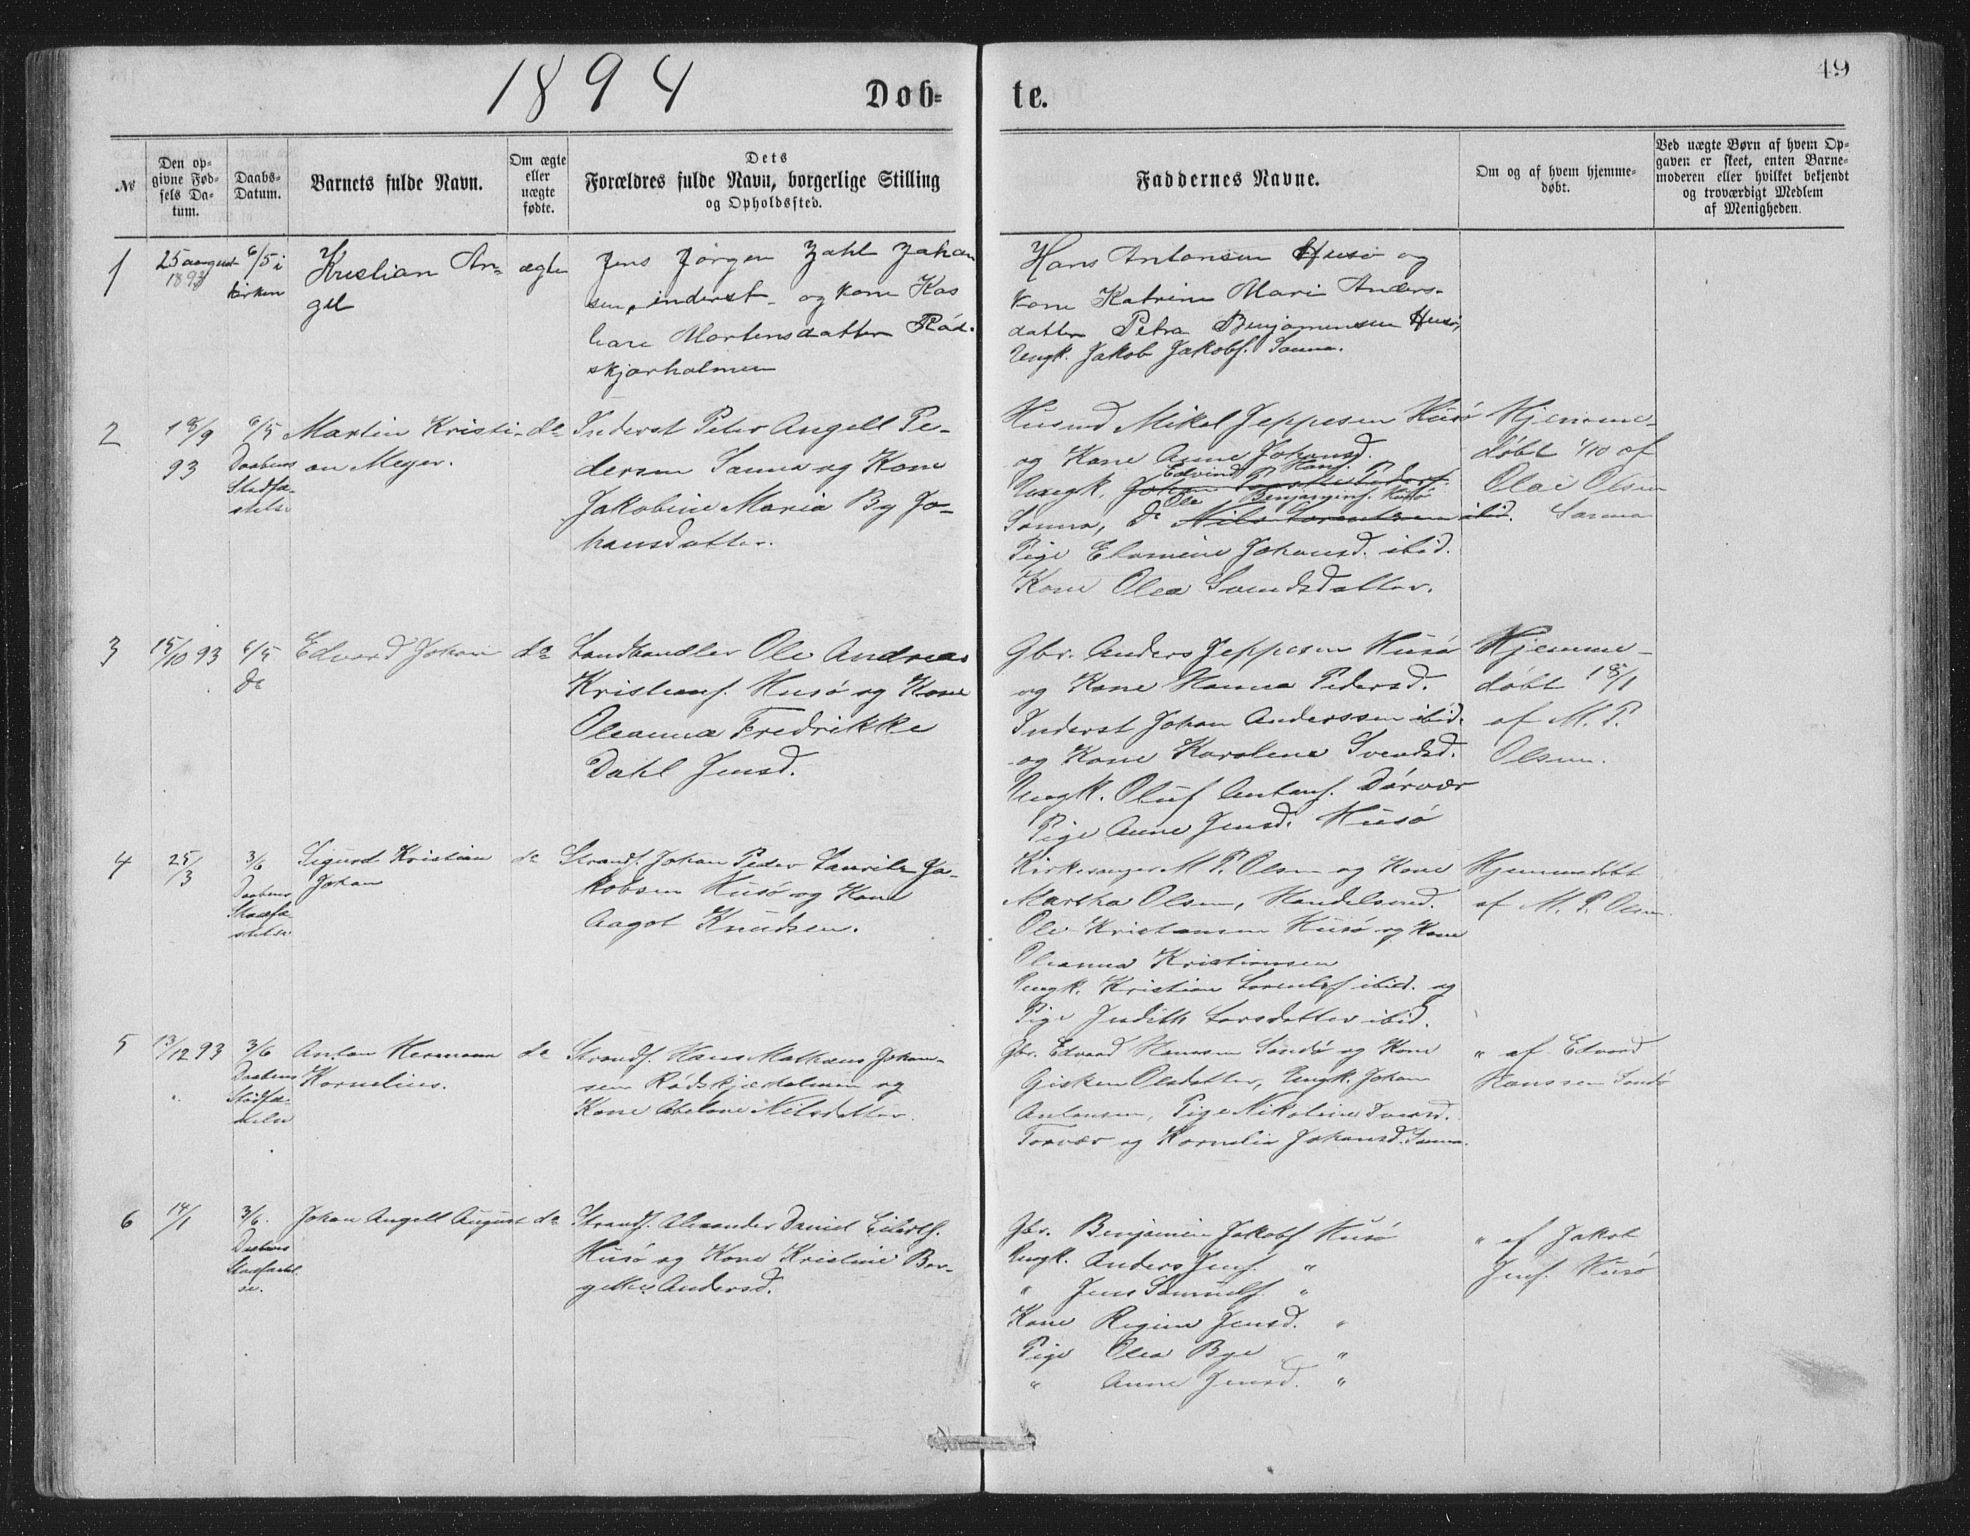 1894
Døb=
te.
49
№
Den op=
givne Fød=
sels Da=
tum.
Daabs=
Datum.
Barnets fulde Navn.
Om ægte
eller
uægte
fødte.
Dets
Forældres fulde Navn, borgerlige Stilling
og Opholdssted.
Faddernes Navne.
Om og af hvem hjemme=
døbt.
Ved uægte Børn af hvem Op=
gaven er skeet, enten Barne=
moderen eller hvilket bekjendt
og troværdigt Medlem
af Menigheden.
1
25 august
1893
6/5 i
kirken
Kristian An-
gel
ægte
Jens Jørgen Zahl Johan
sen, inderst og kone Kas
Mortensdatter Rød-
skjærholmen
Hans Antonsen Husø og
kone Katrine Marie Anders-
datter Petra Benjaminsen Husø,
Ungk. Jakob Jakobs. Sanna.
2
18/9
93
6/5
Daabens
Stadfæ-
stelse
Martin Kristi-
an Meyer.
do
Inderst Peter Angell Pe-
dersen Sanna og Kone
Jakobine Maria By Jo-
hansdatter.
Husmd Mikel Jeppesen Husø
og Kone Anne Johansd.
Edvind Hans.
Ungk. Johan Peders.
Ole Benjamins. Husø
Sanna, do Nils Lorentsen ibid.
Pige Elomine Johansd. ibid.
Kone Olea Svendsdatter.
Hjemme-
døbt 1/10 af
Olai Olsen
Sanna
3
15/10 93
6/5
do
Edvard Johan
do
Landhandler Ole Andreas
Kristians. Husø og Kone
Oleanna Fredrikke
Dahl Jensd.
Gbr. Anders Jeppesen Husø
og Kone Hanna Pedersd.
Inderst Johan Anderssen ibid.
og Kone Karolina Svendsd.
Ungk. Oluf Antons. Dørvær
Pige Anne Jensd. Husø
Hjemme-
døbt 18/1
af M. P.
Olsen.
4
25/3
3/6
Daabens
Stadfæ-
stelse
Sigurd Kristian
Johan
do
Strands. Johan Peder Lauritz Ja-
kobsen Husø og Kone
Aagot Knudsen.
Kirkesanger M. P. Olsen og Kone
Martha Olsen, Handelsmd.
Ole Kristiansen Husø og Kone
Oleanna Kristiansen
Ungk. Kristian Lorents. ibid. og
Pige Judith Larsdatter ibid.
Hjemmedøbt
af M. P. Olsen.
5
13/12 93
3/6
Daabens
Stadfæ-
stelse
Anton Hermann
Kornelius.
do
Strands. Hans Mathias Johan-
sen Rødskjærholmen og
Kone Abelone Nilsdatter.
Gbr. Edvard Hanssen Sandø og Kone
Gisken Olsdatter, Ungk. Johan
Antonsen, Pige Nikoline Ivarsd.
Torvær og Kornelia Johansd. Sanna.
" af Edvard
Hanssen Sandø
6
14/1
3/6.
Daabens
Stadfæstel
se.
Johan Angell August
do
Strands. Alexander Daniel Eilerts.
Husø og Kone Kristine Ber-
gitte Andersd.
Gbr. Benjamin Jakobs. Husø
Ungk. Anders Jens. "
" Jens Samuels. "
Kone Regine Jensd. "
Pige Olea Bye "
" Anne Jensd. "
" af Jakob
Jens. Husø